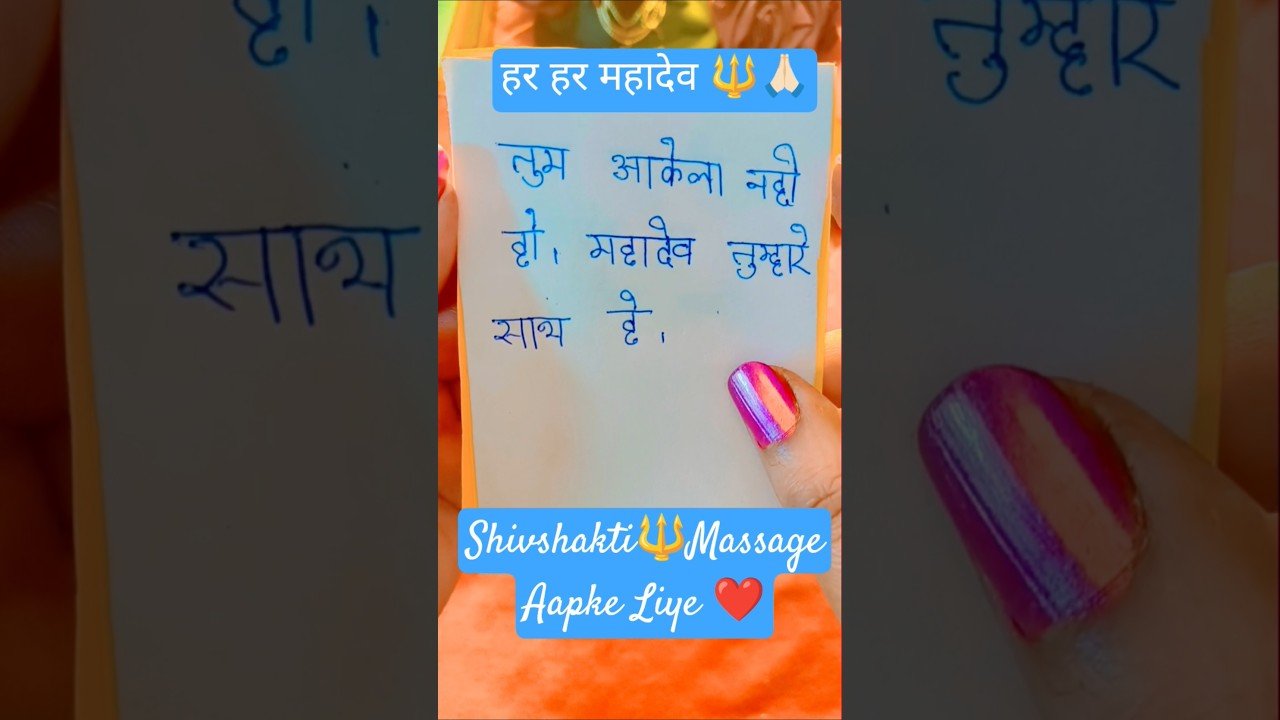 हर हर महादेव 🔱🙏🏻
तुम आकेला नही
हो। महादेव तुम्हारे
साथ है।
Shivshakti🔱Massage
Aapke Liye ❤️